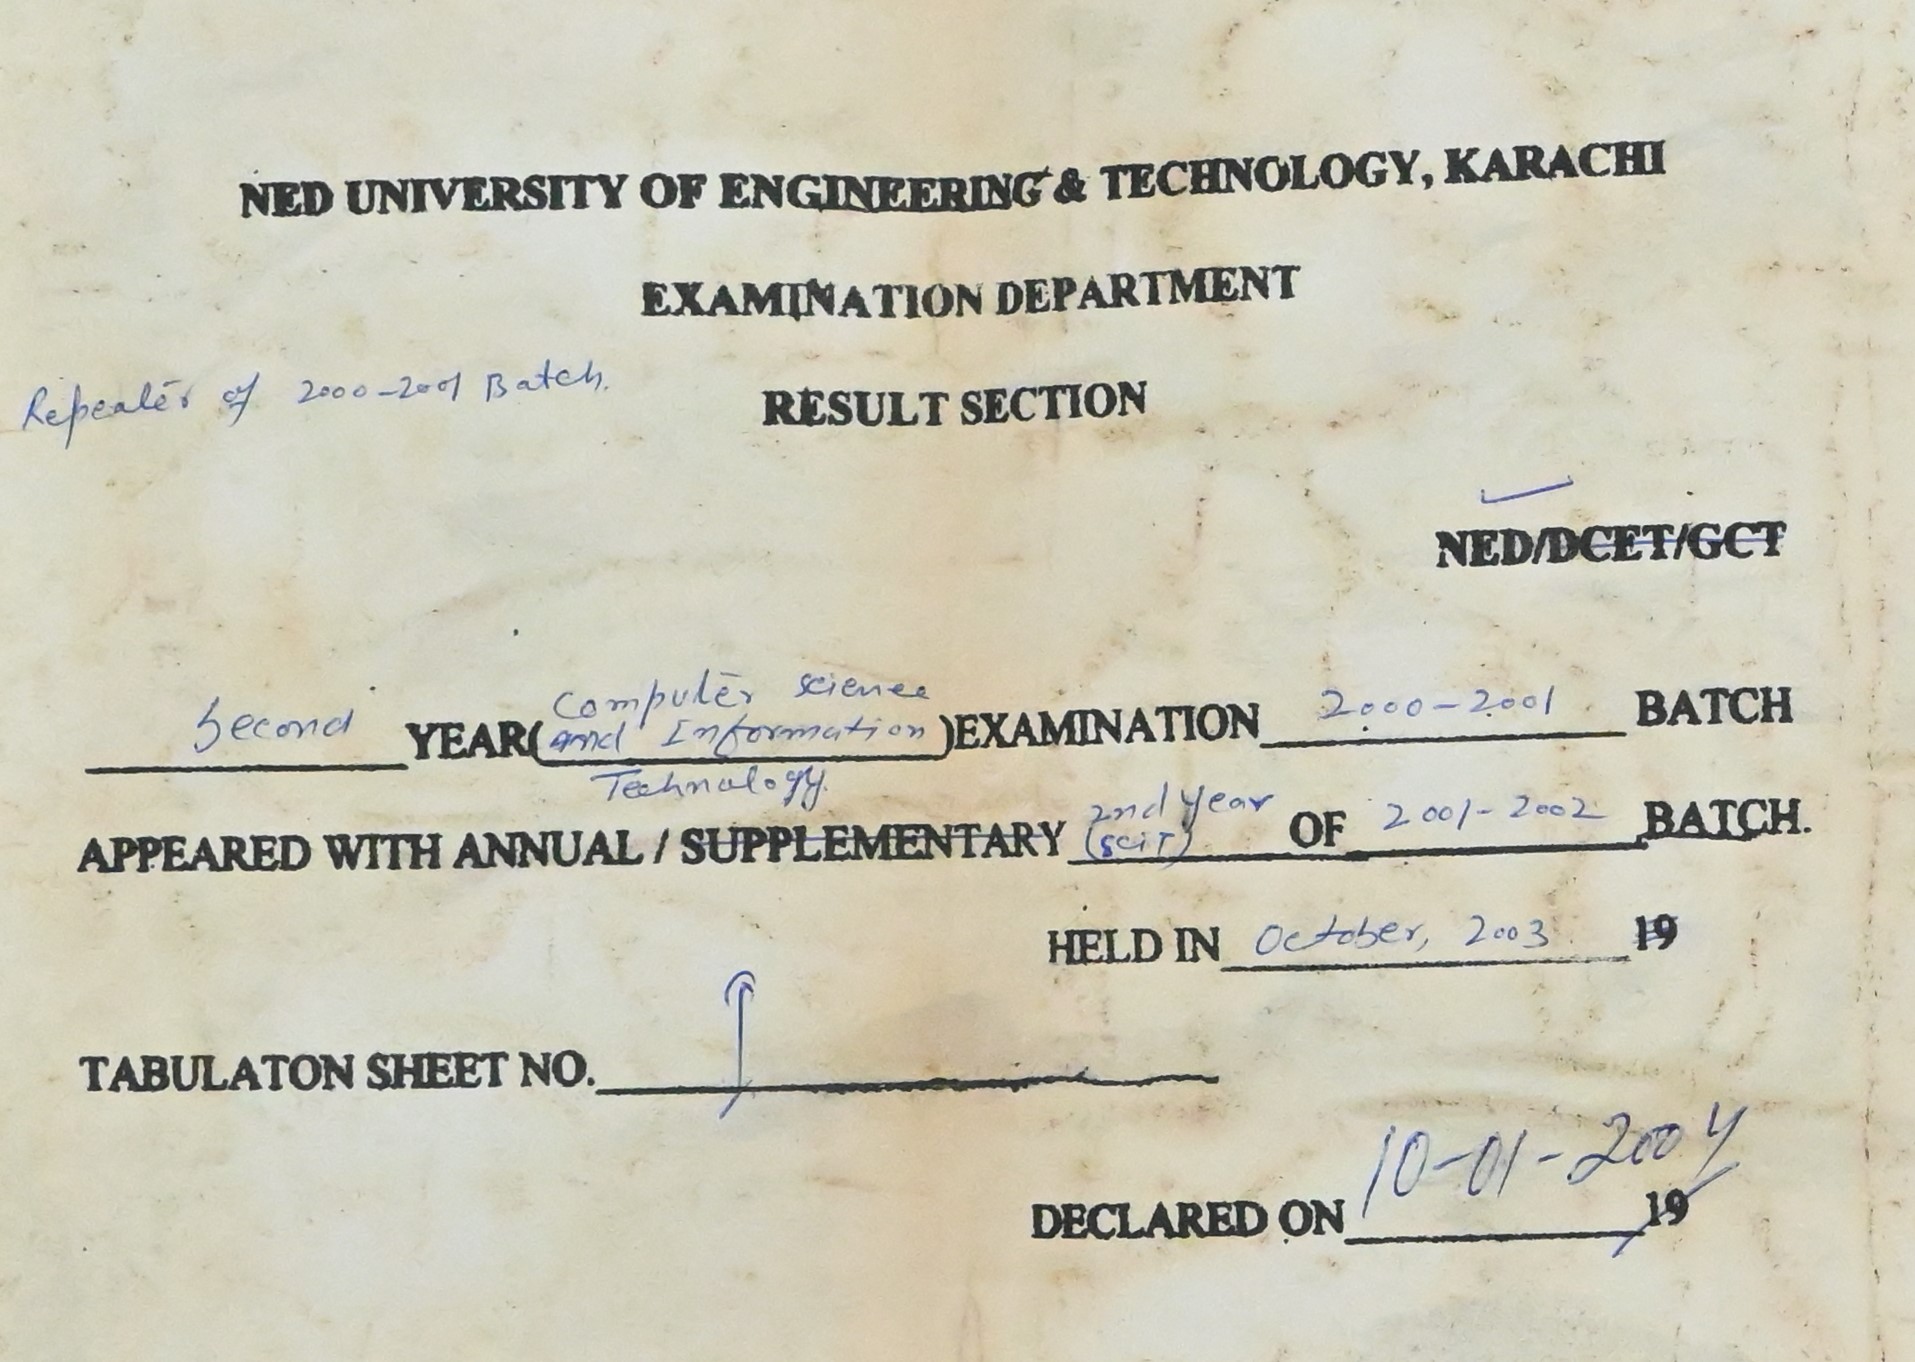 NED UNIVERSITY OF ENGINEERING & TECHNOLOGY, KARACHI
EXAMINATION DEPARTMENT
Repeater of 2000-2001 Batch.
RESULT SECTION
NED/DCET/GCT
Second YEAR( Computer science and Information Technology. )EXAMINATION 2000-2001 BATCH
APPEARED WITH ANNUAL / SUPPLEMENTARY 2nd year (SCIT) OF 2001-2002 BATCH.
HELD IN October, 2003 19
TABULATON SHEET NO.
DECLARED ON 10-01-2004 19